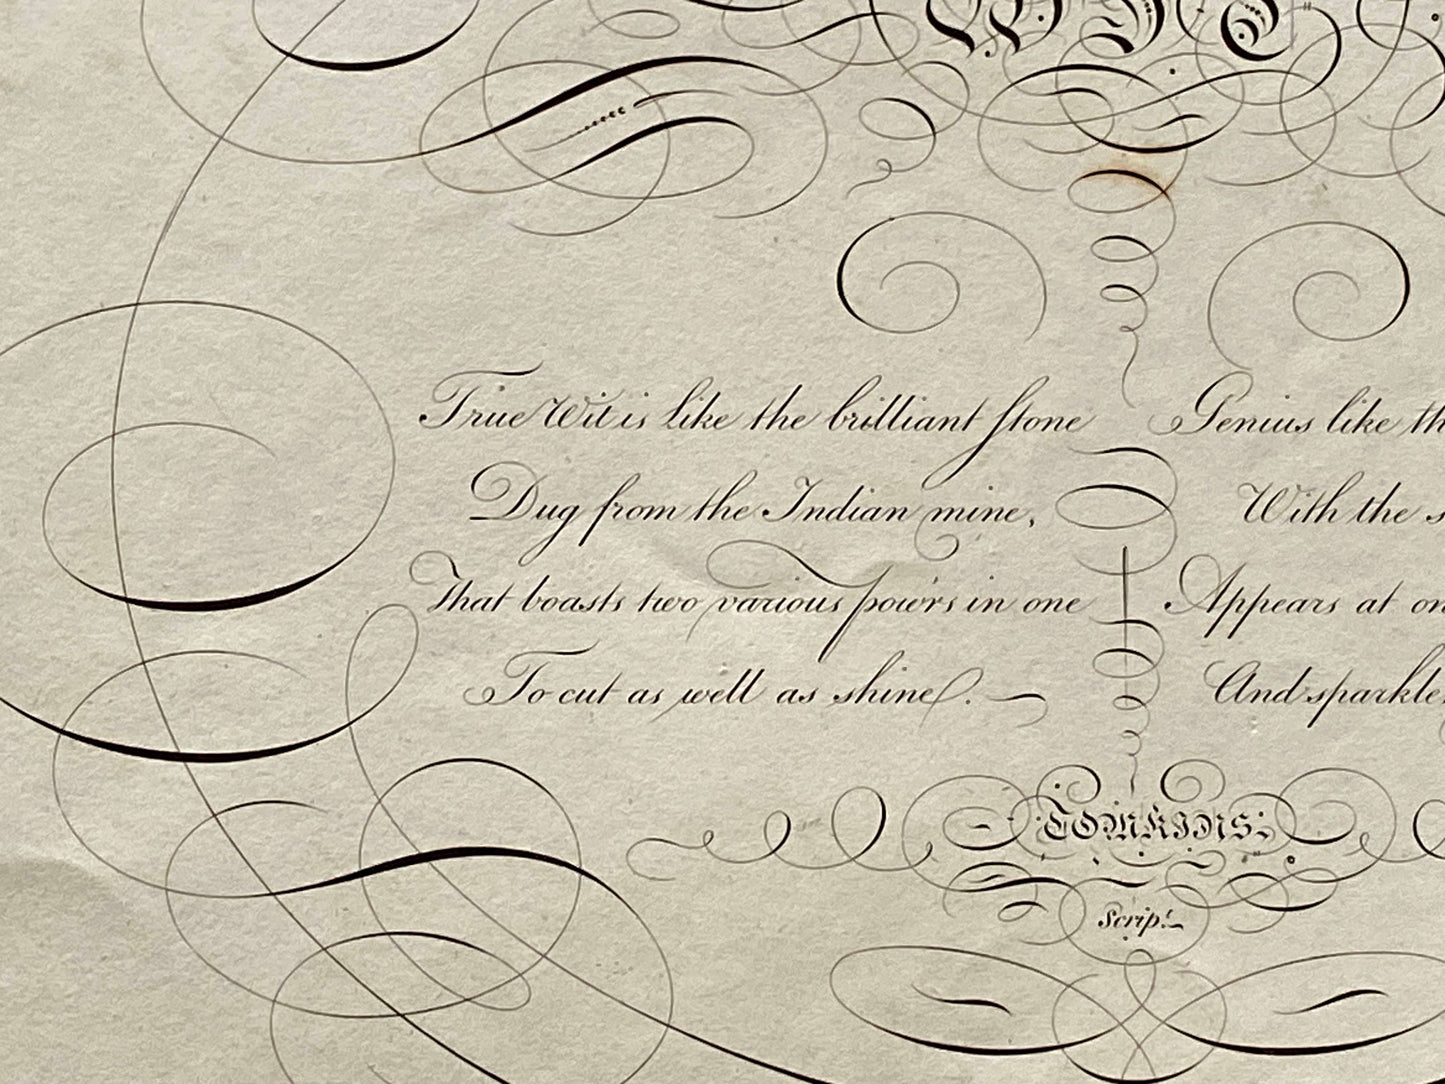 True Wit is like the brilliant stone
Dug from the Indian mine,
That boasts two various pow'rs in one
To cut as well as shine.
Genius like
With the
Appears at
And sparkle
TOMKINS.
Scrip.t